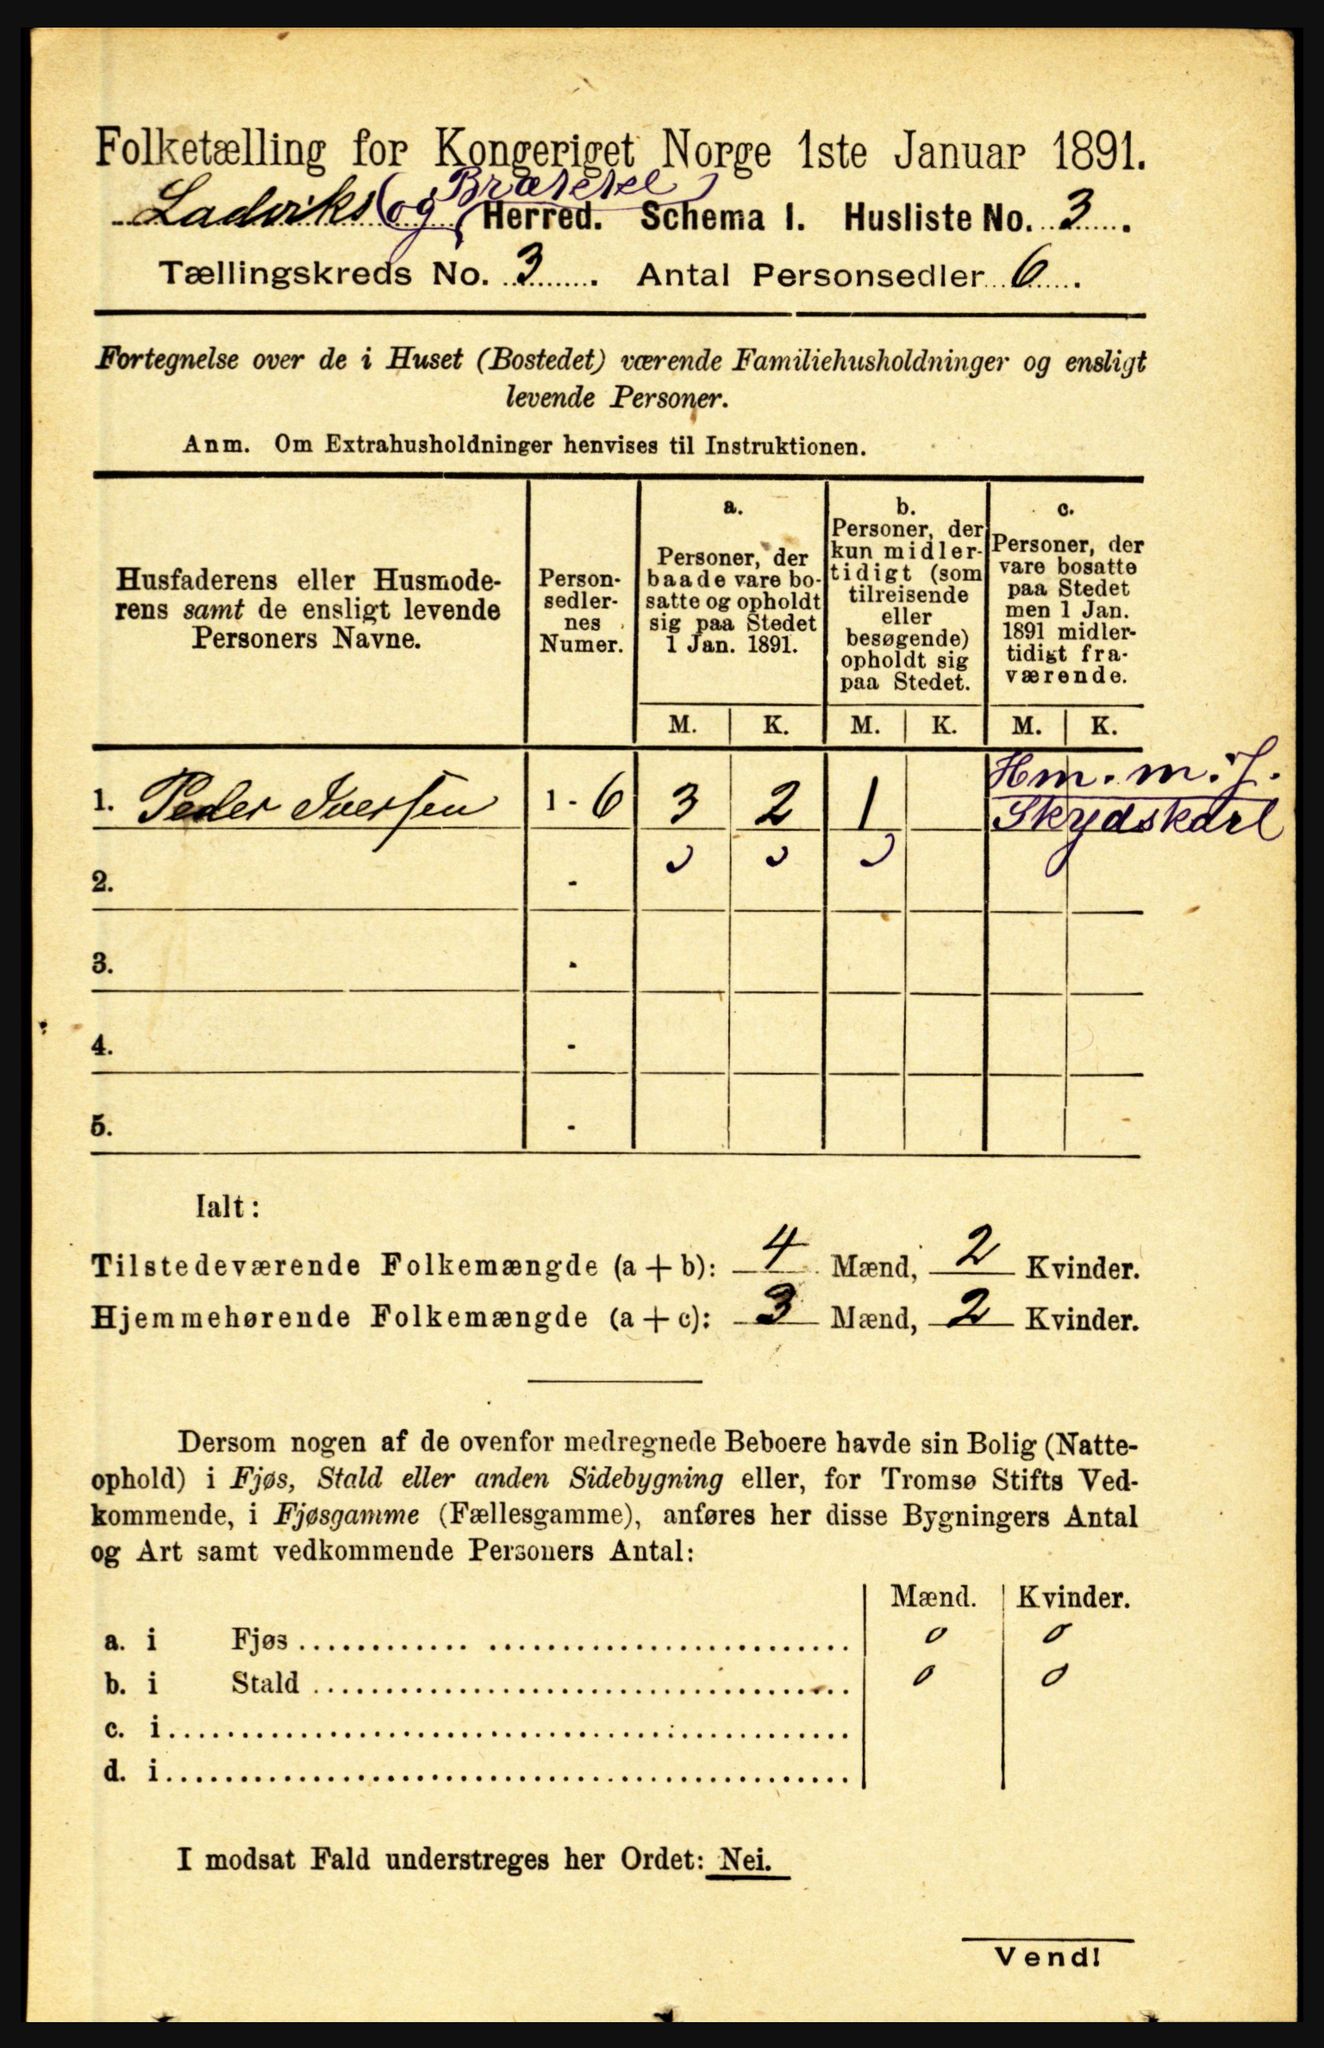 Folketælling for Kongeriget Norge 1ste Januar 1891.
Ladviks (og Brættel) Herred. Schema I. Husliste No. 3.
Tællingskreds No. 3. Antal Personsedler 6.
Fortegnelse over de i Huset (Bostedet) værende Familiehusholdninger og ensligt
levende Personer.
Anm. Om Extrahusholdninger henvises til Instruktionen.
Husfaderens eller Husmode-
rens samt de ensligt levende
Personers Navne.
Person-
sedler-
nes
Numer.
a.
Personer, der
baade vare bo-
satte og opholdt
sig paa Stedet
1 Jan. 1891.
b.
Personer, der
kun midler-
tidigt (som
tilreisende
eller
besøgende)
opholdt sig
paa Stedet.
c.
Personer, der
vare bosatte
paa Stedet
men 1 Jan.
1891 midler-
tidigt fra-
værende.
M. K. M. K. M. K.
1. Peder Iversen 1 - 6 3 2 1 Hm. m. J.
Skydskarl
2. -
3. -
4. -
5. -
Ialt:
Tilstedeværende Folkemængde (a + b): 4 Mænd, 2 Kvinder.
Hjemmehørende Folkemængde (a + c): 3 Mænd, 2 Kvinder.
Dersom nogen af de ovenfor medregnede Beboere havde sin Bolig (Natte-
ophold) i Fjøs, Stald eller anden Sidebygning eller, for Tromsø Stifts Ved-
kommende, i Fjøsgamme (Fællesgamme), anføres her disse Bygningers Antal
og Art samt vedkommende Personers Antal:
Mænd. Kvinder.
a. i Fjøs 0 0
b. i Stald 0 0
c. i
d. i
I modsat Fald understreges her Ordet: Nei.
Vend!